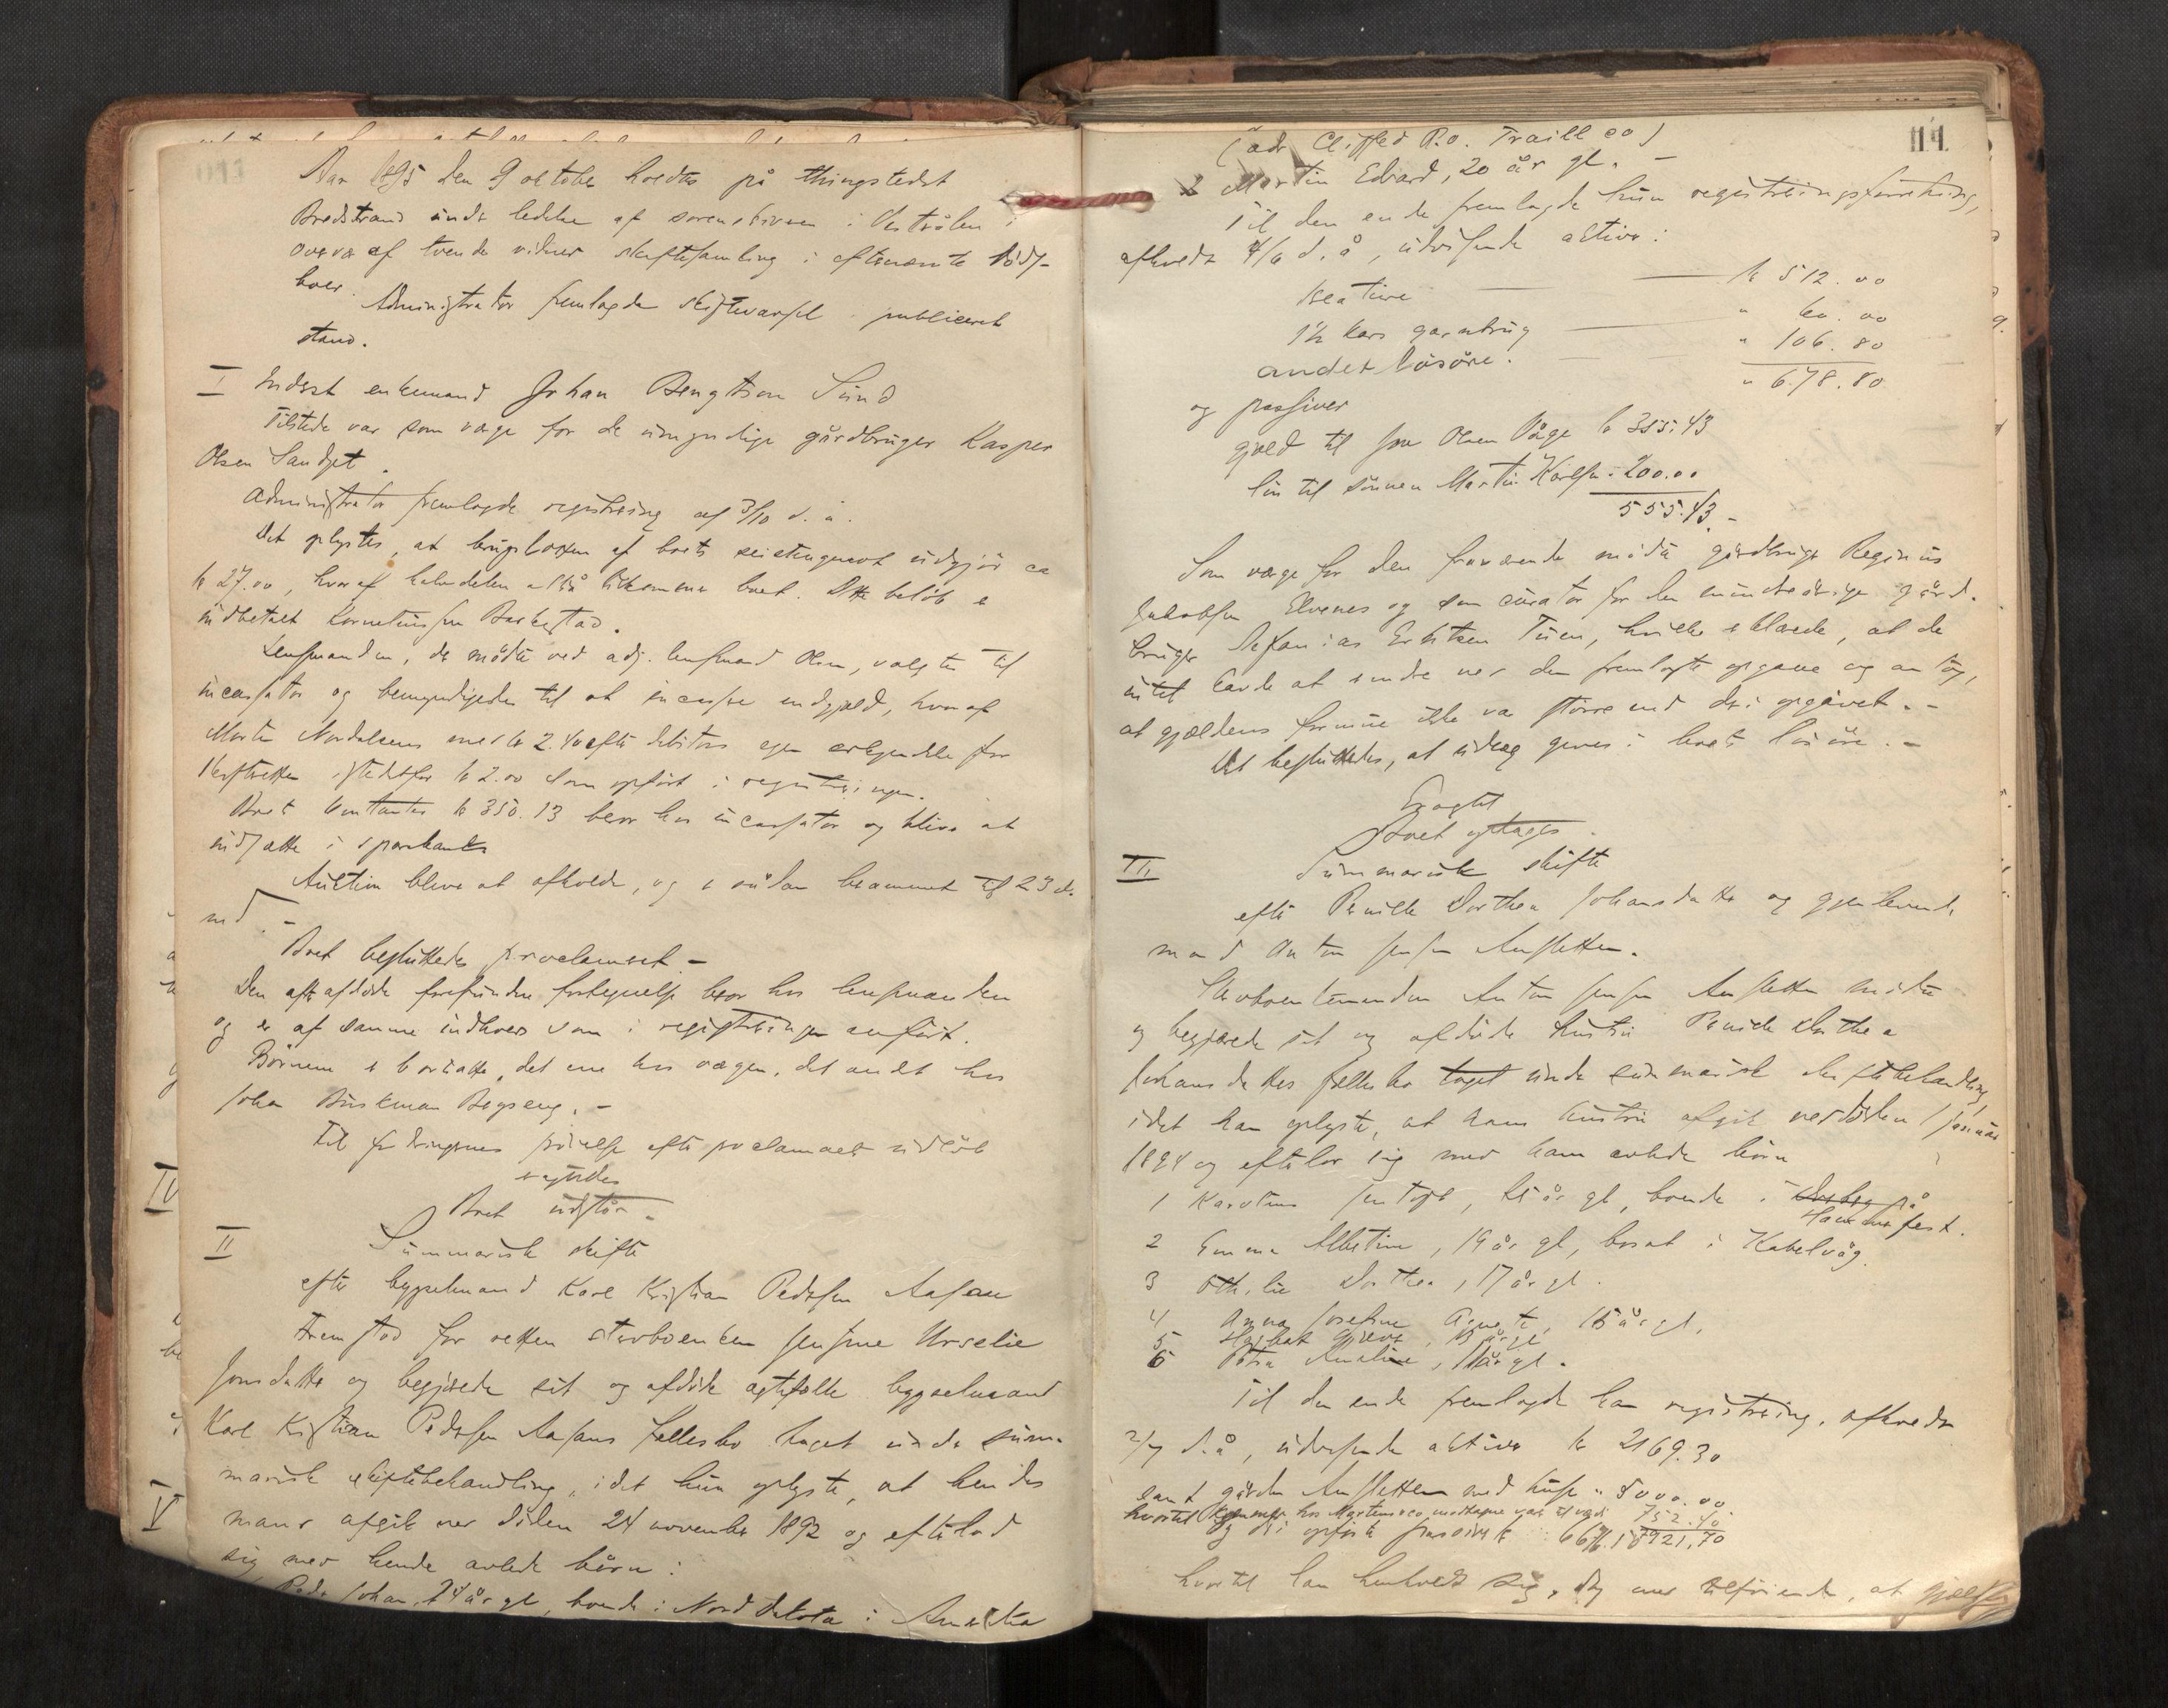 Aar 1895 den 9 oktober holdtes på thingstedet
Bredstrand under ledelse af sorenskriver i Vesterålen i
overvær af tvende vidner skiftesamling i efternævnte döds-
boer.
Administrator fremlagde skiftevarsel publiceret
stand.
I Inderst enkemand Johan Bengtson Sund
Tilstede var som værge for de umyndige gårdbruger Kasper
Olsen Sandset.
Administrator fremlagde registrering af 3/10 d. å.
Det oplystes, at boets udgjör ca
kr 27.00, hvoraf halvdelen altså tilkommer boet. Dette beløb er
indbetalt Kornelius Barkestad.
Lensmanden, der mödte ved adj. lensmand Olsen, valgtes til
incassator og bemyndigedes til at incassere indgjæld, hvoraf
Morten Nordalsens med kr 2.40 efter debitors egen erkjendelse for
skifteretten istedetfor kr 2.00 som opfört i registreringen.
Boets kontanter kr 350.13 beror hos incassator og bliver at
indsætte i sparebank
Auktion bliver at afholde, og er sådan berammet til 23 d.
md. -
Boet besluttedes proclameret. -
Den efter afdöde forefundne beror hos lensmanden
og er af samme indhold som i registreringen anfört.
Börnene er bortsatte, det ene hos værgen, det andet hos
Johan Buskman Bogseng. -
Til fordringernes prövelse efter proclamaets udlöb
eragtedes
Boet udstår. -
II Summarisk skifte
efter bygselmand Karl Kristian Pedersen Aasan
Fremstod for retten stervboenken Jensine Urselie
Jonsdatter og begjærede sit og afdöde ægtefælle bygselmand
Karl Kristian Pedersen Aasans fællesbo taget under sum-
marisk skiftebehandling, idet hun oplyste, at hendes
mand afgik ved döden 24 november 1892 og efterlod
sig med hende avlede börn:
Peder Johan, 24 år gl, boende i Nord Dakota i Amerika
IV
V
114
(adr Cliffted P.O. Traill co)
2 Martin Edvard, 20 år gl. -
Til den ende fremlagde hun registreringsforretning,
afholdt 4/6 d. å, udvisende aktiver:
Kreature kr 512.00
1/2 kars garnbrug " 60.00
andet lösöre. " 106.80
" 678.80
og passiver
gjæld til Olsen Våge kr 355.43
lån til sönnen Martin Karlsen " 200.00
555.43. -
Som værge for den fraværende mödte gårdbruger Reginus
Jakobsen Elvenes og som curator for den mindreårige gård-
bruger Sefanias Eriksen Tuen, hvilke erklærede, at de
intet havde at erindre ved den fremlagte opgave og antog,
at gjældens formue ikke var större end der opgivet. -
Det besluttedes, at udlæg gives i boets lösöre. -
Eragtet
Boet optages.
III Summarisk skifte
efter Pernille Dorthea Johansdatter og gjenlevende
mand Anton Jensen Ansletten.
Stervboenkemanden Anton Jensen Ansletten mödte
og begjærede sit og afdöde hustru Pernille Dorthea
Johansdatters fællesbo taget under summarisk skiftebehandling,
idet han oplyste, at hans hustru afgik ved döden 1 januar
1894 og efterlod sig med ham avlede börn
1 Karoline Jentoft, 25 år gl, boende i på
Hammerfest.
2 Emma Albertine, 19 år gl, bosat i Kabelvåg
3 Othilie Dorthea, 17 år gl.
4 Anna Josefine Agnete, 15 år gl.
5 Herbert, 13 år gl
6 Petra Amalie, 11 år gl.
Til den ende fremlagde han registrering, afholdt
2/7 d. å, udvisende aktiver kr 2169.30
samt gården Ansletten med huse " 5000.00
hvortil kommer hos Mortens & co modtagne varer til værdi 752.40
og deri opförte passiver kr 6676.1 7921.70
hvortil han henholdt sig, dog med tilföiende, at gjælden